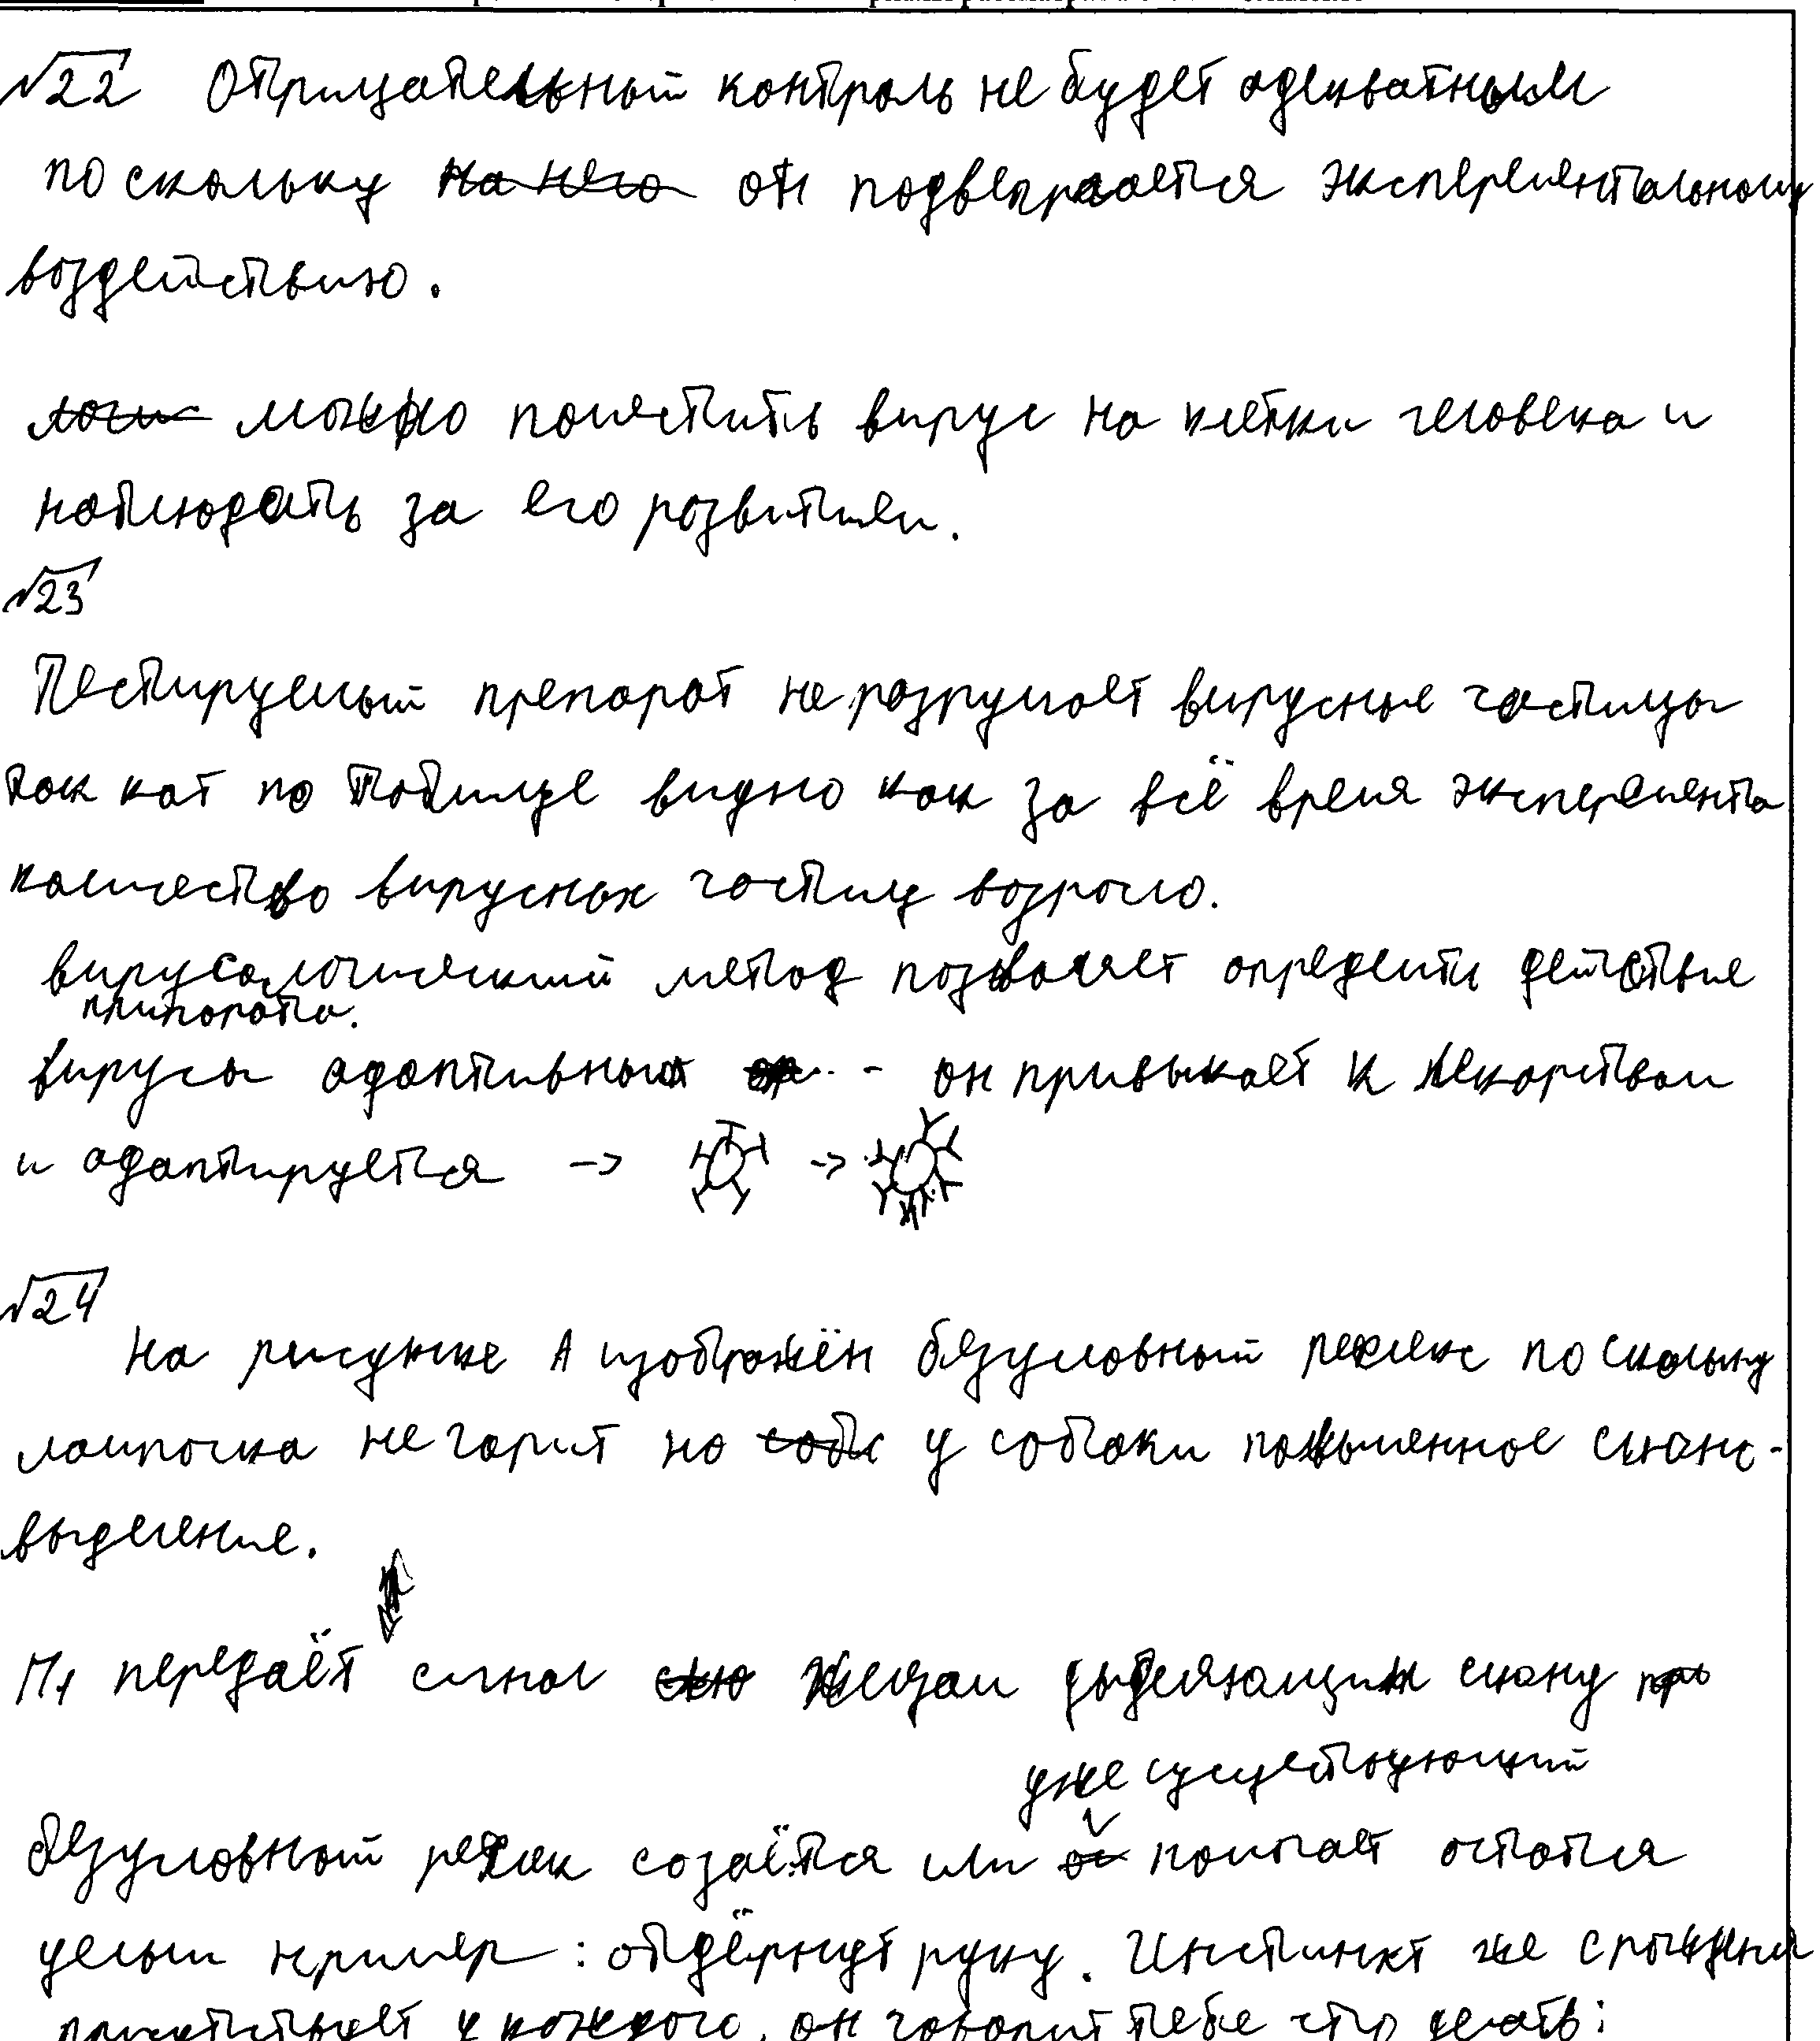 №22 Отрицательный контроль не будет адекватным
по скольку на него он подвергается эксперементальному
воздействию.
можно поместить вирус на клетки человека и
наблюдать за его развитием.
№23
Тестируемый препарат не разрушает вирусные частицы
так как по таблице видно как за всё время эксперемента
количество вирусных частиц возрасло.
вирусологический метод позволяет определить действие
припарата.
вирусы адаптивный - он привыкает к лекарствам
и адаптируется -> ->
№24
На рисунке А изображён безусловный рефлекс по скольку
лампочка не горит но соба у собаки повышенное слюно-
выделение.
П1 передаёт сигнал желзам выделяющим слюну
уже существующий
безусловный создаётся или помогает остатся
целым нример: отдёрнут руку. Инстинкт же с рождения
присутствует у каждого, он говорит тебе что делать: